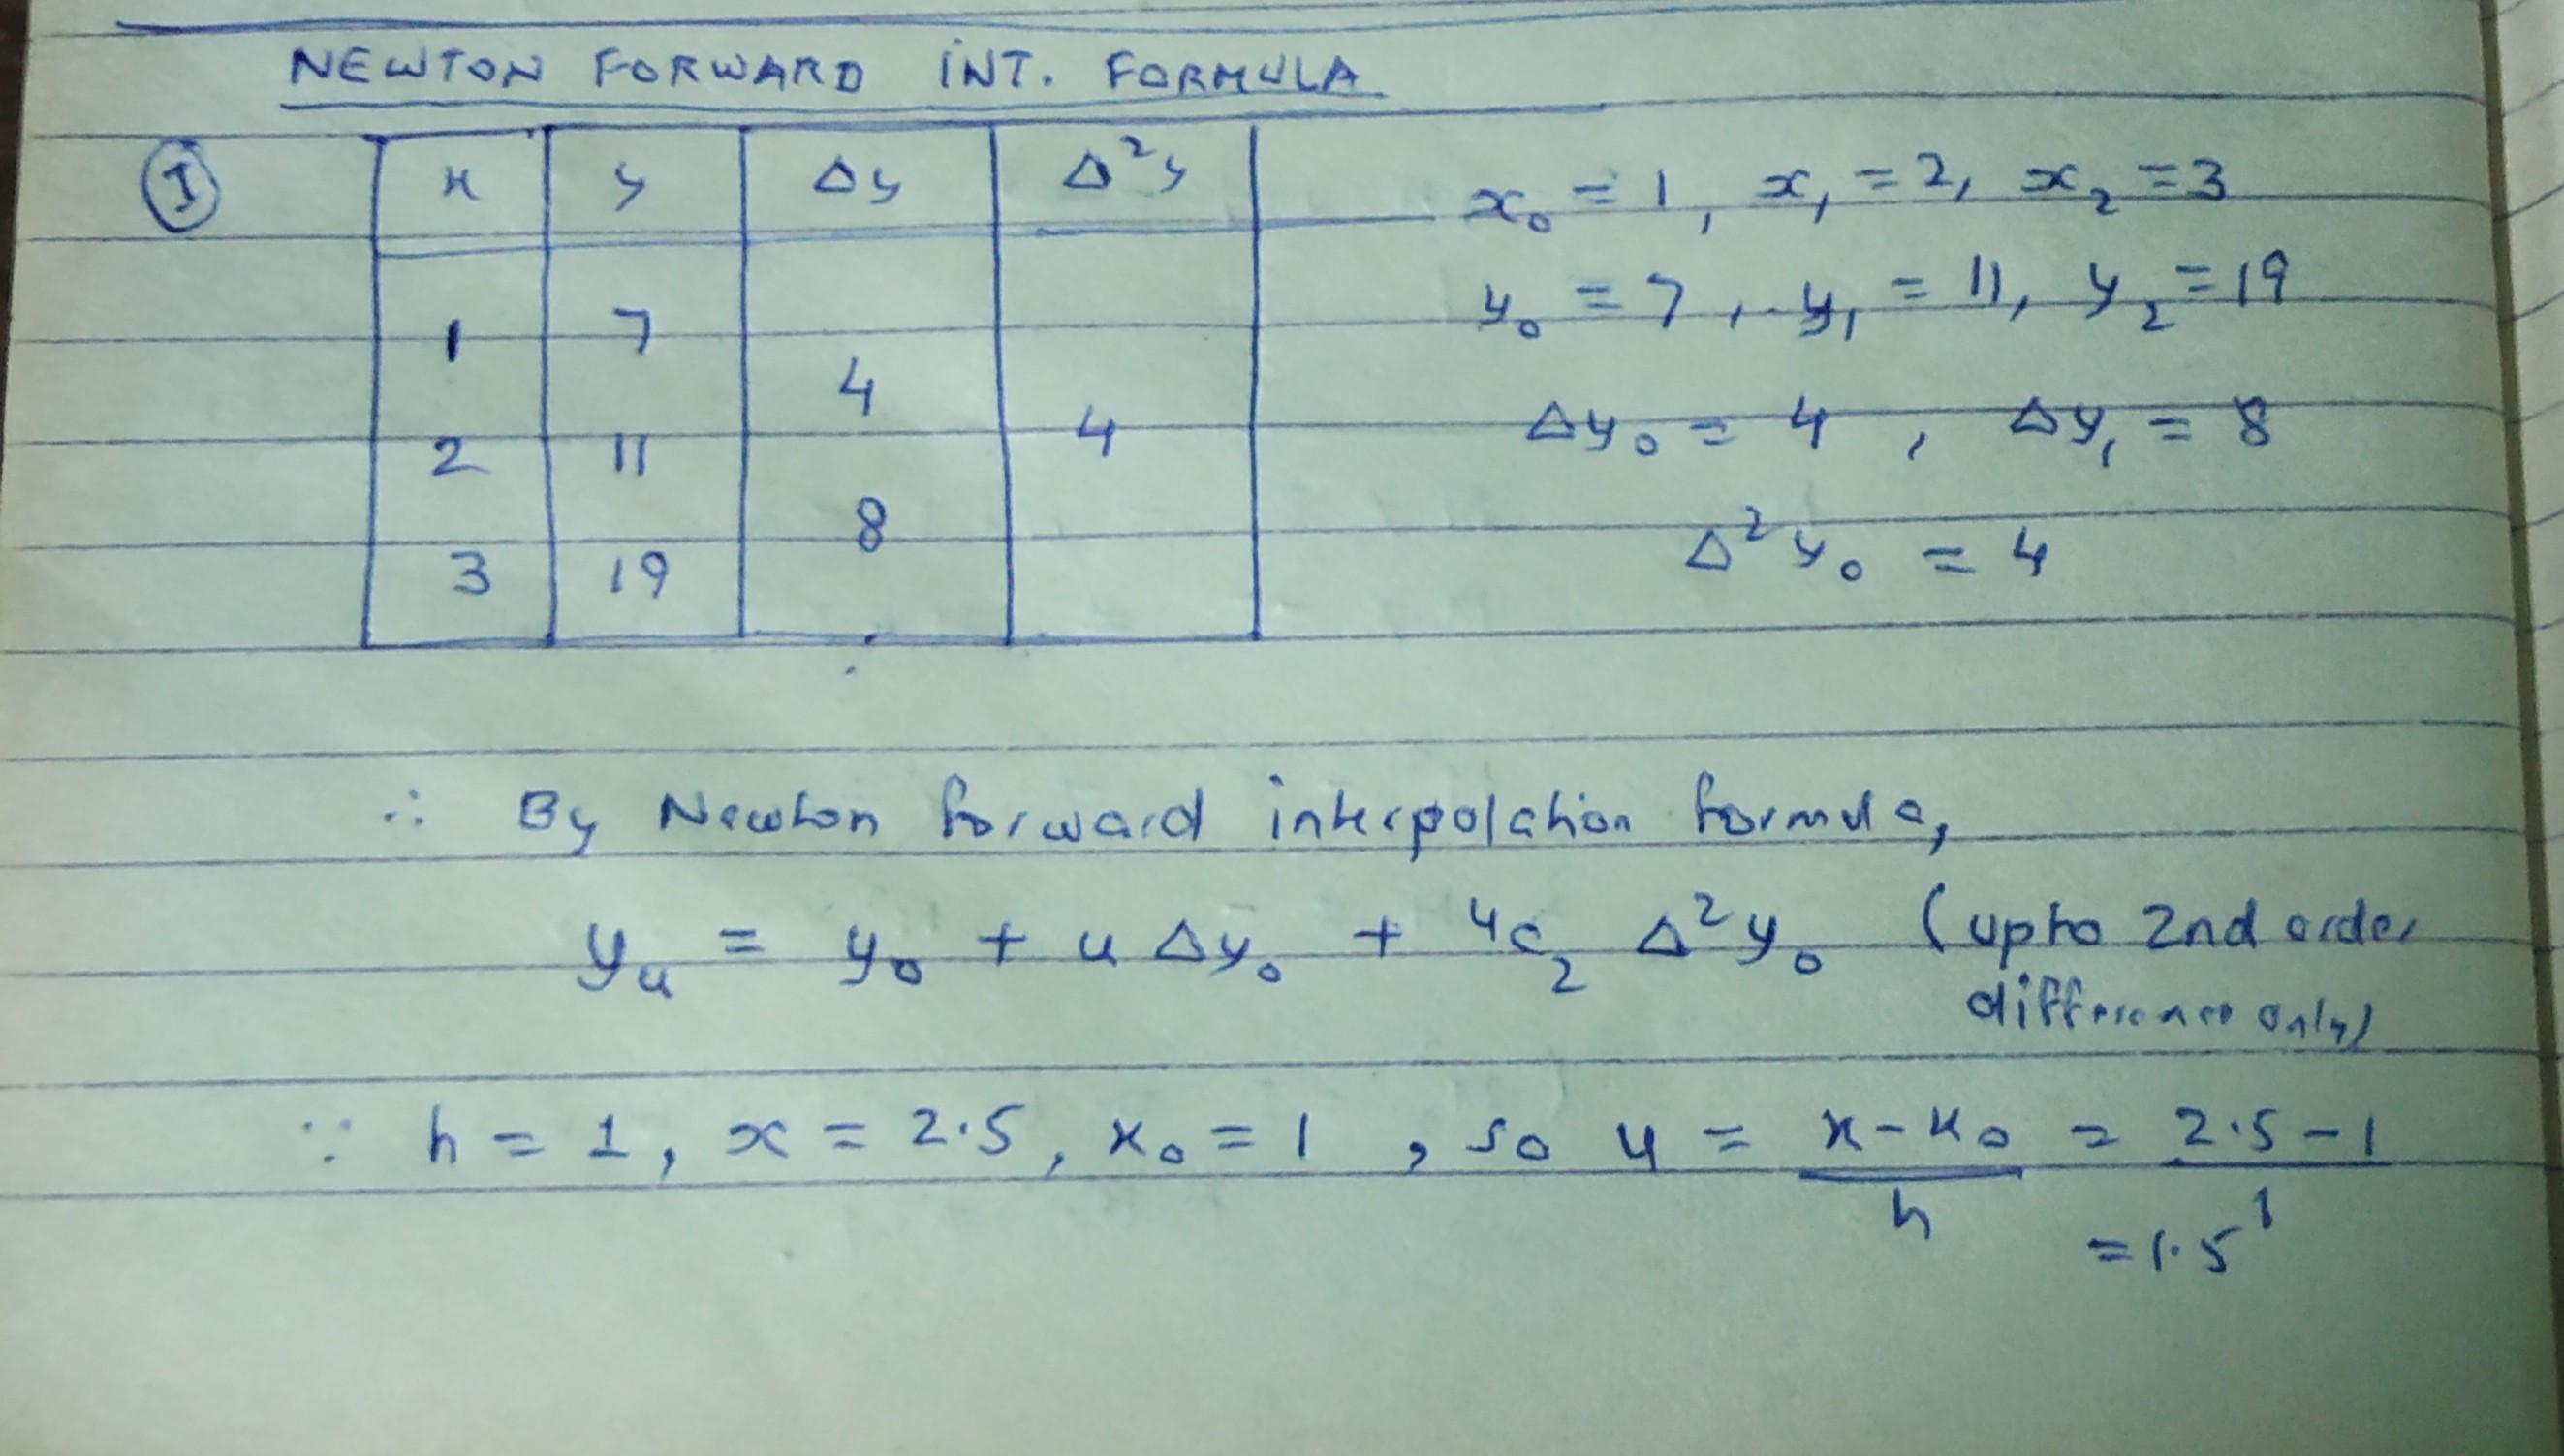 NEWTON FORWARD INT. FORMULA
I
x y Δy Δ²y
1 7
4
2 11 4
8
3 19
x₀ = 1, x₁ = 2, x₂ = 3
y₀ = 7, y₁ = 11, y₂ = 19
Δy₀ = 4, Δy₁ = 8
Δ²y₀ = 4
∴ By Newton forward interpolation formula,
yᵤ = y₀ + u Δy₀ + ᵘc₂ Δ²y₀ (upto 2nd order
difference only)
∵ h = 1, x = 2.5, x₀ = 1, so u = x - x₀ / h = 2.5 - 1 / 1
= 1.5